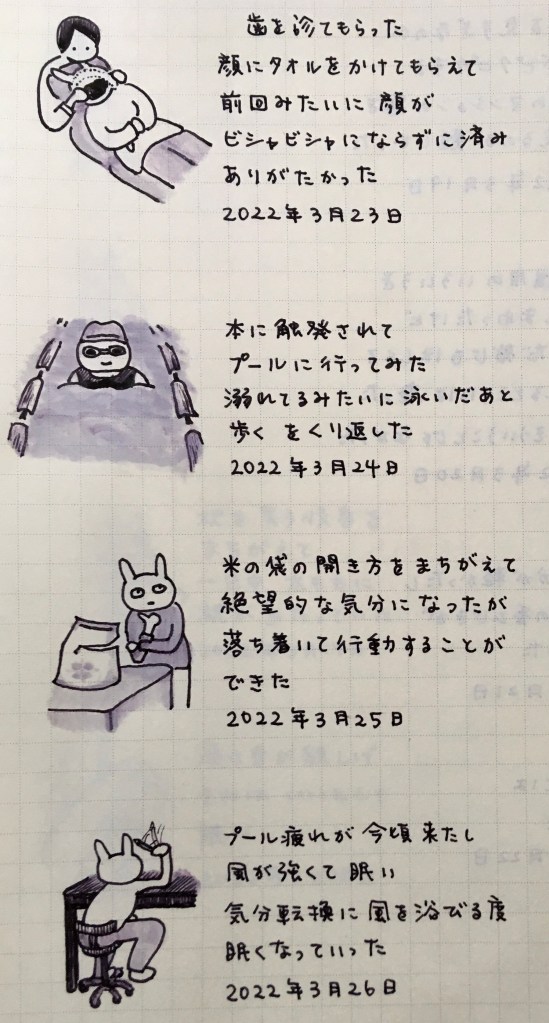 歯を診てもらった
顔にタオルをかけてもらえて
前回みたいに顔が
ビシャビシャにならずに済み
ありがたかった
2022年3月23日
本に触発されて
プールに行ってみた
溺れてるみたいに泳いだあと
歩くをくり返した
2022年3月24日
米の袋の開き方をまちがえて
絶望的な気分になったが
落ち着いて行動することが
できた
2022年3月25日
プール疲れが今頃来たし
風が強くて眠い
気分転換に風を浴びる度
眠くなっていった
2022年3月26日